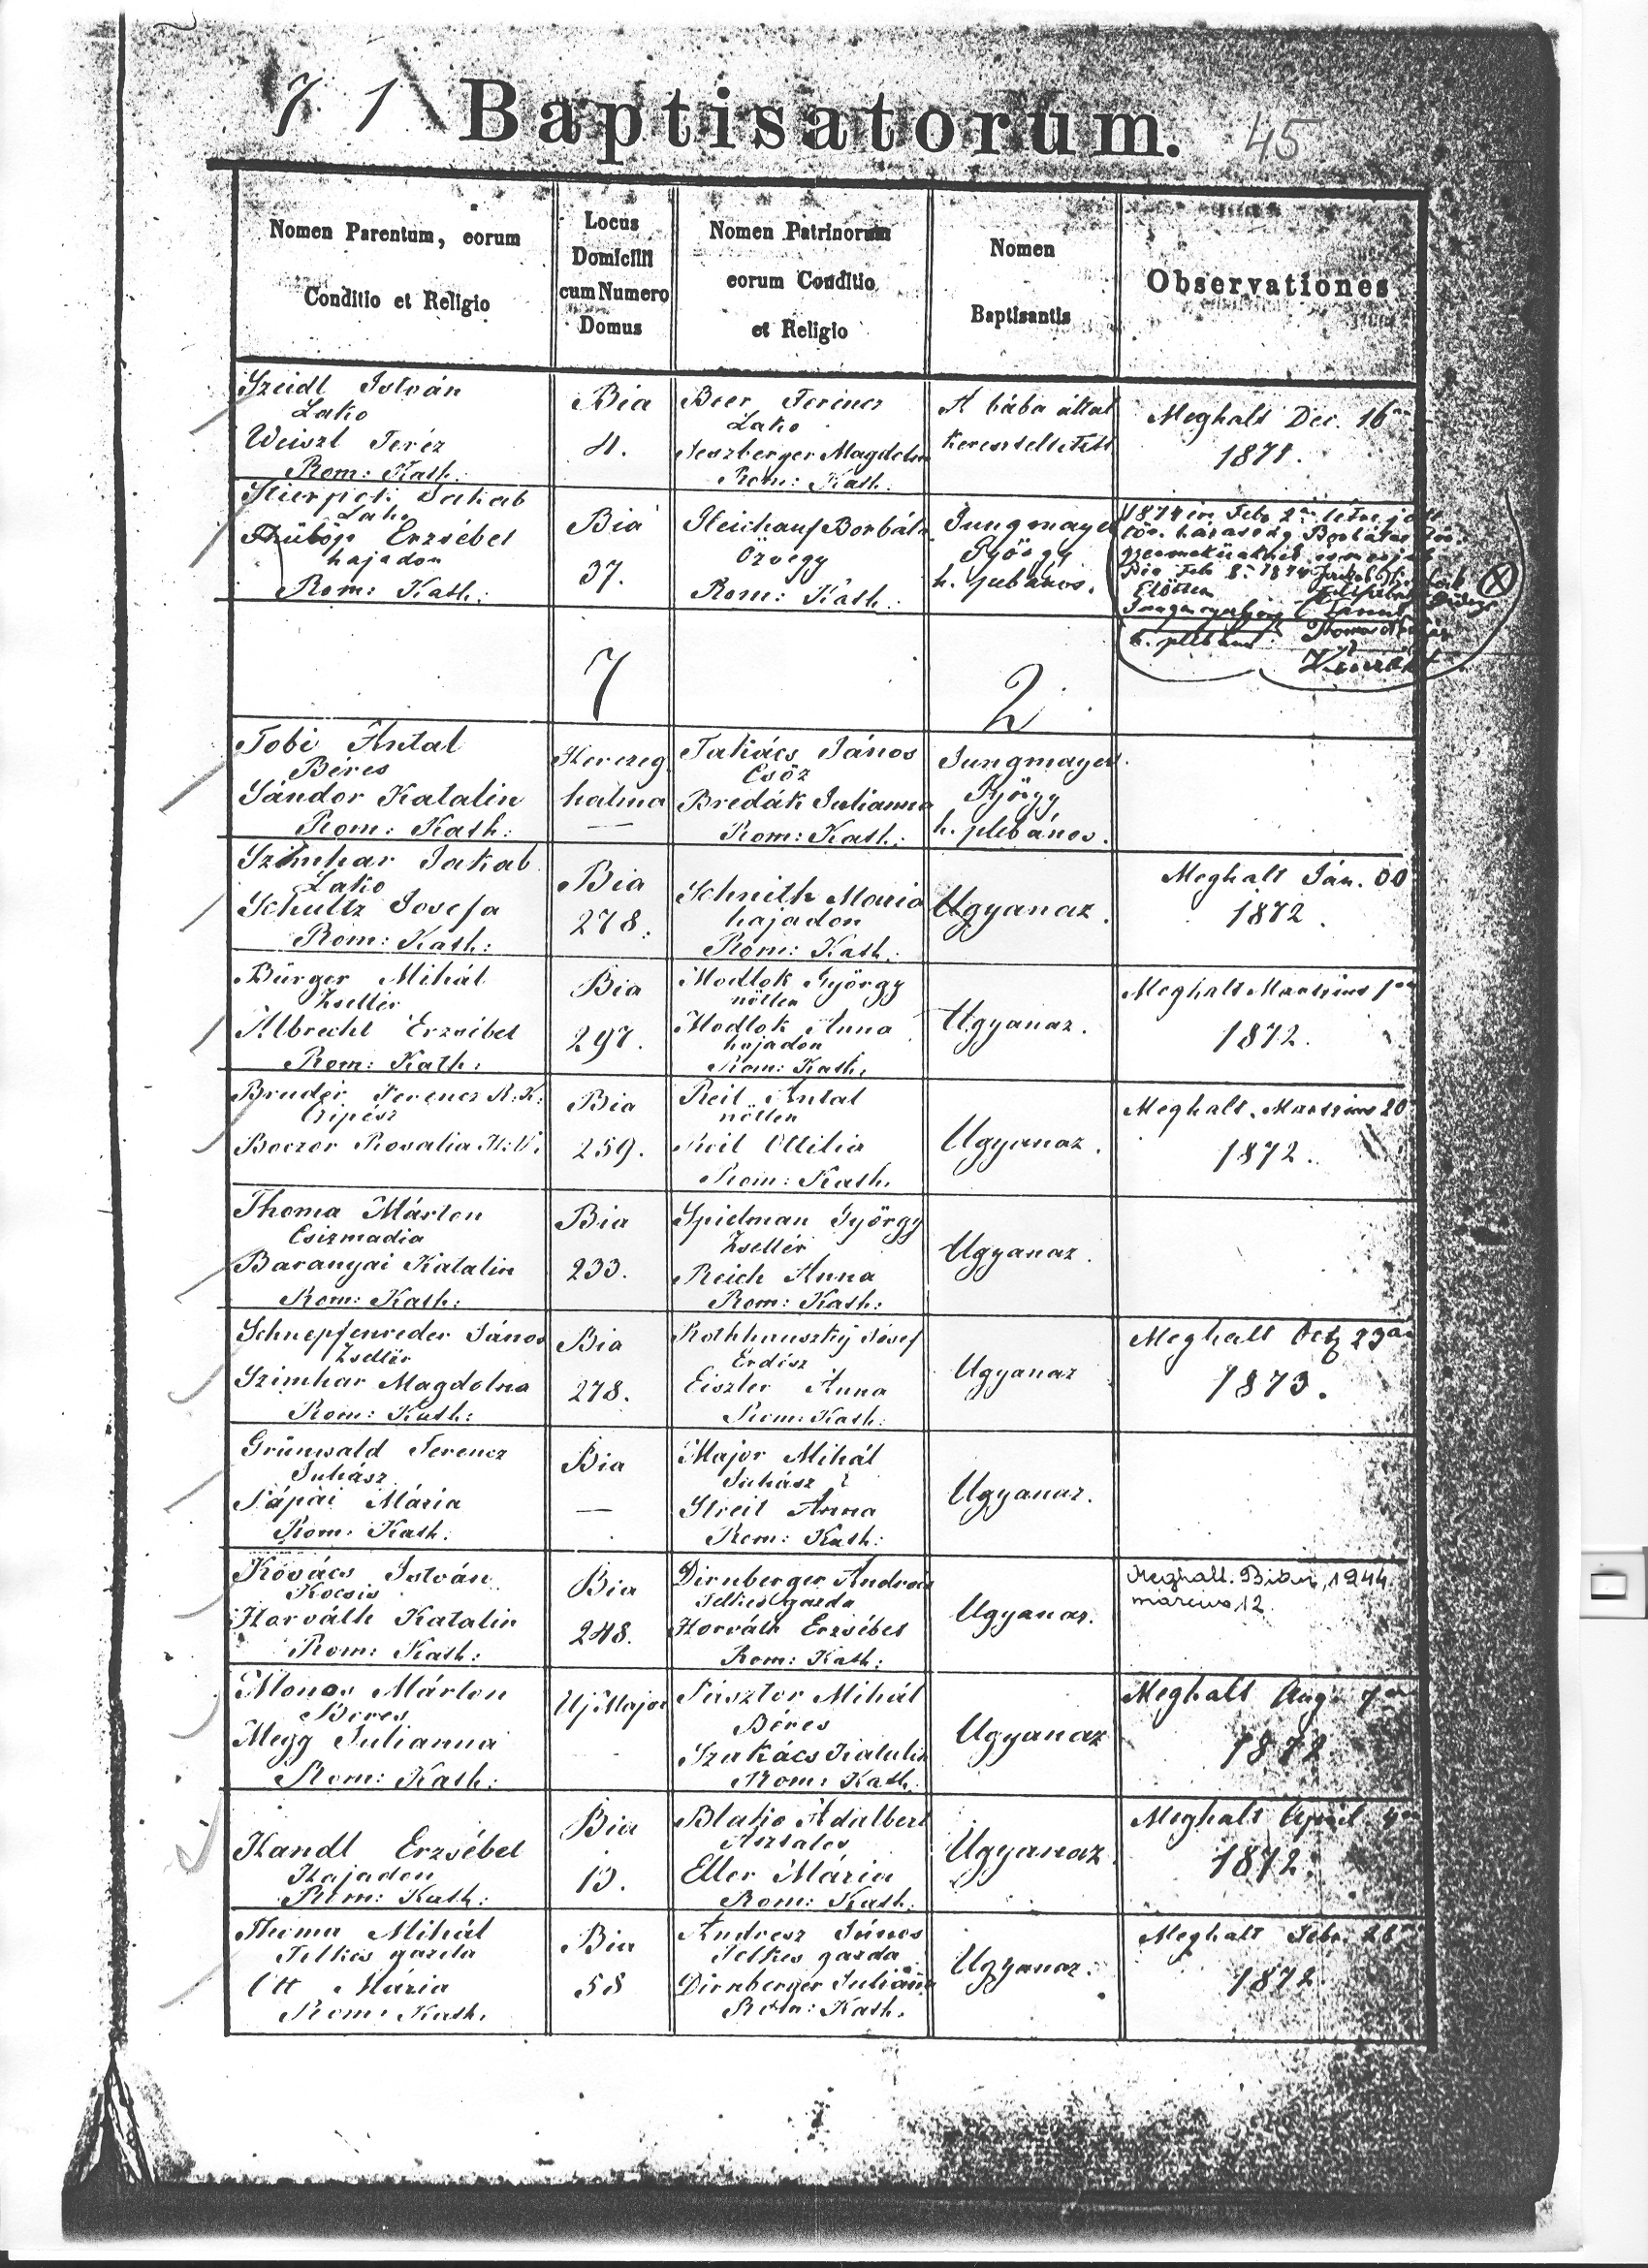 7 1 Baptisatorum. 45
Nomen Parentum, eorum
Conditio et Religio
Locus
Domicilii
cum Numero
Domus
Nomen Patrinorum
eorum Conditio
et Religio
Nomen
Baptisantis
Observationes
Szeidl István
Lako
Weiszl Teréz
Rom: Kath:
Bia
4.
Beer Ferincz
Lako
Magdolna
Rom: Kath:
A bába által
Meghalt Dec. 16
1871.
Jakab
Lako
Erzsébet
hajadon
Rom: Kath:
Bia
37.
Borbála
özvegy
Rom: Kath:
Jungmayer
György
h. plebános.
1874 Feb. 2
Bia Feb 8. 1874
Előttem
h. plebános
7
2
Tobi Antal
Béres
Sándor Katalin
Rom: Kath:
Herczeg
halma
—
Takács János
Csősz
Bredák Julianna
Rom: Kath:
Jungmayer
György
h. plebános.
Szimhar Jakab
Lako
Schultz Josefa
Rom: Kath:
Bia
278.
Schnith Maria
hajadon
Rom: Kath:
Ugyanaz.
Meghalt Ján.
1872.
Bürger Mihál
Zsellér
Albrecht Erzsébet
Rom: Kath:
Bia
297.
Modlok György
nőtlen
Modlok Anna
hajadon
Rom: Kath:
Ugyanaz.
Meghalt Martzius 1
1872.
Bruder Ferencz R: K:
Czipész
Boczor Rosalia
Bia
259.
Reil Antal
nőtlen
Reil Ottilia
Rom: Kath.
Ugyanaz.
Meghalt Martzius 20
1872.
Thoma Márton
Csizmadia
Baranyai Katalin
Rom: Kath:
Bia
233.
Spidman György
Zsellér
Reich Anna
Rom: Kath:
Ugyanaz.
Schnepfenreder János
Zsellér
Szimhar Magdolna
Rom: Kath:
Bia
278.
Rothhauszky Jósef
Erdész
Eiszler Anna
Rom: Kath:
Ugyanaz
Meghalt Oct 23
1873.
Grünwald Ferencz
Juhász
Pápai Mária
Rom: Kath:
Bia
—
Major Mihál
Juhász
Streit Anna
Rom: Kath:
Ugyanaz.
Kovács István
Kocsis
Horváth Katalin
Rom: Kath:
Bia
248.
Dirnberger András
Telkes gazda
Horváth Erzsébet
Rom: Kath:
Ugyanaz.
Meghalt. Bián, 1944.
március 12.
Monos Márton
Béres
Megg Julianna
Rom: Kath:
Uj Major
Pásztor Mihál
Béres
Szakács Katalin
Rom: Kath:
Ugyanaz
Meghalt Aug. 7
1872
Handl Erzsébet
Hajadon
Rom: Kath:
Bia
13.
Blaho Adalbert
Asztalos
Eller Mária
Rom: Kath:
Ugyanaz.
Meghalt April
1872.
Thoma Mihál
Telkes gazda
Ott Mária
Rom: Kath.
Bia
58
Andresz János
Telkes gazda
Dirnberger Juliána
Rom: Kath.
Ugyanaz.
Meghalt Febr. 28
1872.